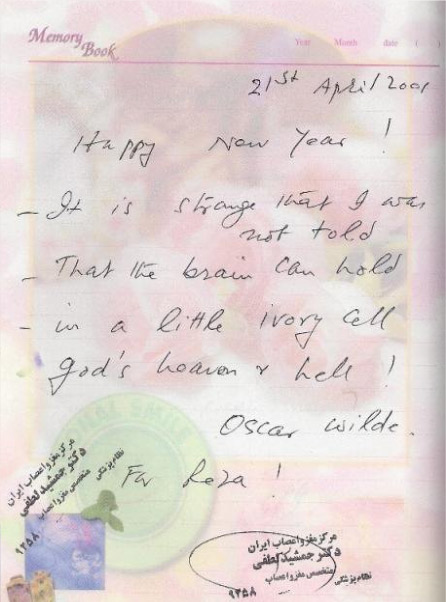 Memory
Book
Year Month date ( )
21st April 2001
Happy New Year !
_ It is strange that I was
not told
_ That the brain can hold
- in a little ivory cell
God's heaven & hell !
Oscar Wilde.
For Reza !
مرکز مغز و اعصاب ایران
دکتر جمشید لطفی
متخصص مغز و اعصاب
نظام پزشکی
۹۳۵۸
مرکز مغز و اعصاب ایران
دکتر جمشید لطفی
متخصص مغز و اعصاب
نظام پزشکی
۹۳۵۸